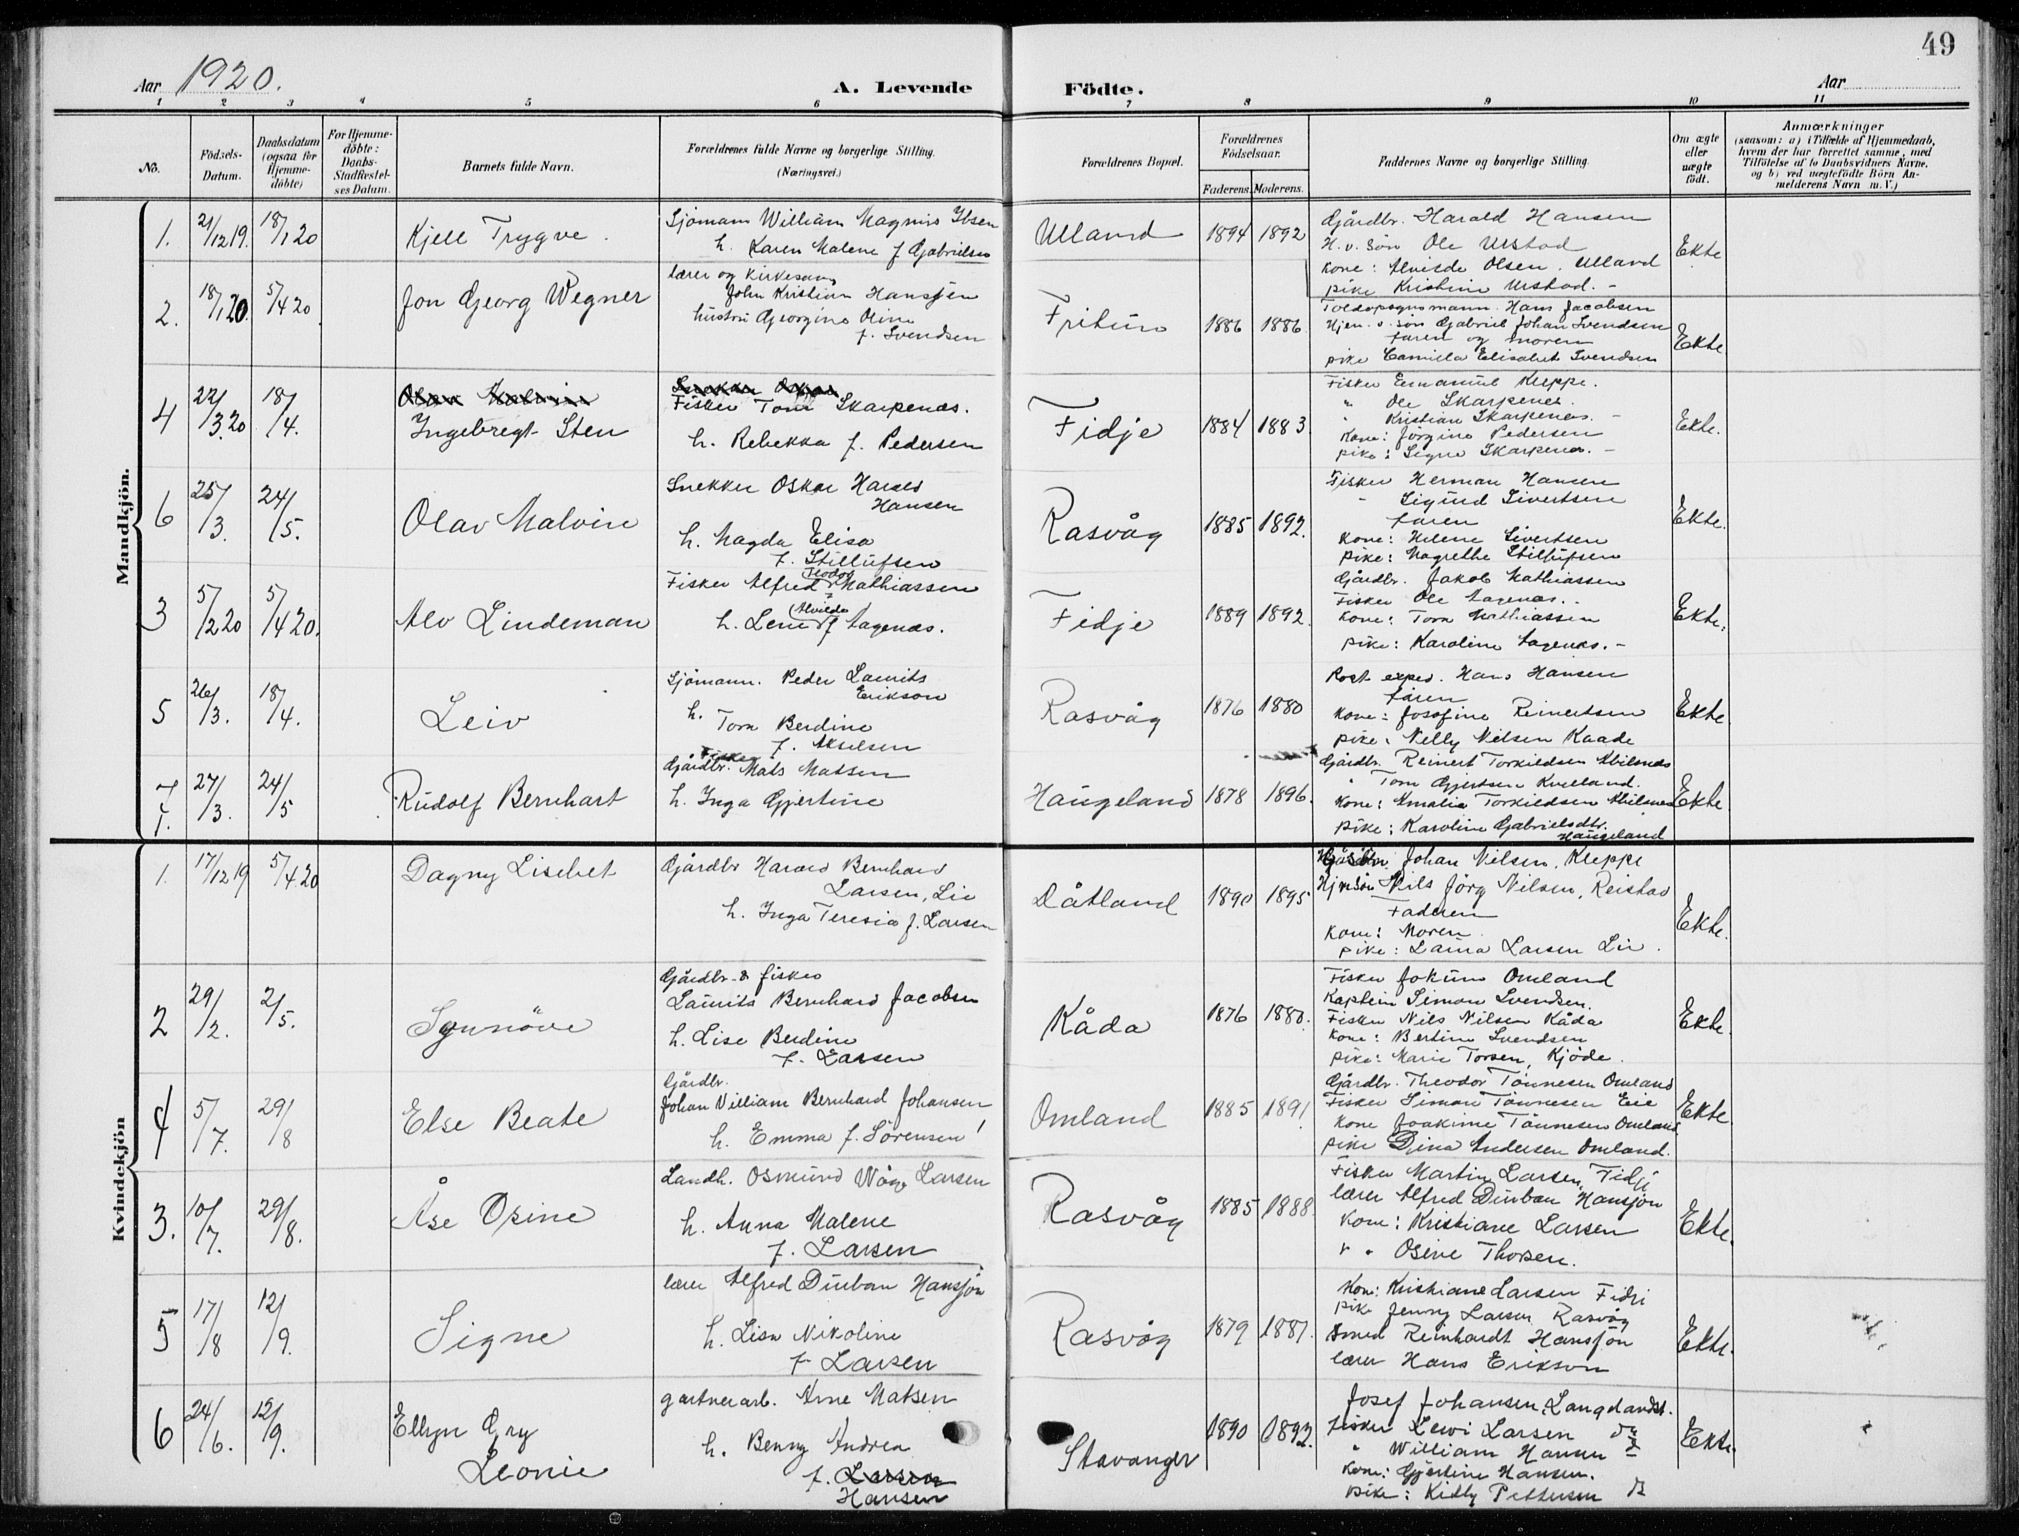 49
Aar 1920.
A. Levende Fødte.
Aar
1 2 3 4 5 6 7 8 9 10 11
No.
Fødsels-Datum.
Daabsdatum (ogsaa for Hjemme-døbte)
For Hjemme-døbte: Daabs-Stadfestel-ses Datum.
Barnets fulde Navn.
Forældrenes fulde Navne og borgerlige Stilling. (Næringsvei.)
Forældrenes Bopæl.
Forældrenes Fødselsaar.
Faderens. Moderens.
Faddernes Navne og borgerlige Stilling.
Om ægte eller uægte født.
Anmærkninger
(saasom: a) i Tilfælde af Hjemmedaab, hvem der har forrettet samme, med Tilføielse af to Daabsvidners Navne, og b) ved uægtefødte Børn An-melderens Navn m. V.)
Mandkjøn.
1. 21/12 19. 18/1 20 Kjell Trygve.
Sjömann William Magnus Ibsen
h. Karen Malene f Gabrielsen
Ulland 1894 1892
Gårdbr. Harald Hansen
H. v. Sön Ole Urstad
Kone: Alvilde Olsen. Ulland
pike Kristine Urstad. -
Ekte
2. 18/1 20. 5/4 20 Jon Georg Wegner
lærer og Kirkesang
John Kristian Hansjön
hustru Georgine Oline
f. Svendsen
Fritun 1886 1886
Toldopsynsmann Hans Jacobsen
Hjem. v. sön Gabriel Johan Svendsen
faren og moren
pike Camilla Elisabet Svendsen
Ekte
4 22/3 20 18/4. Ingebregt Sten
Fisker Tom Skarpenes.
h. Rebekka f. Pedersen
Fidje 1884 1883.
Fisker Emanuel Kleppe.
" Ole Skarpenes.
" Kristian Skarpenes. -
Kone: Jörgine Pedersen
pike: Signe Skarpenes. -
Ekte.
6 25/3. 24/5. Olav Malvin
Snekker Oskar Harald
Hansen
h. Magda Elisa
f. Stillufsen
Rasvåg 1885 1892.
Fisker Herman Hansen
" Sigurd Sivertsen
faren
Kone: Helene Sivertsen
pike: Magrethe Stillufsen
Ekte.
3 5/2 20 5/4 20. Alv Lindeman
Fisker Alfred Teodor Mathiassen
h. Lene (Alvilde) f Aagenæs.
Fidje 1889 1892.
Gårdbr. Jakob Mathiassen
Fisker Ole Aagenæs..
Kone: Tora Mathiassen
pike: Karoline Aagenæs. -
Ekte.
5 26/3. 18/4. Leiv
Sjömann. Peder Lauits
Erikson
h. Tora Berdine
f. Akselsen
Rasvåg 1876 1880
Post exped. Hans Hansen
faren
Kone: Josefine Reinertsen
pike: Nelly Nilsen Kaade
Ekte
7. 27/3. 24/5 Rudolf Bernhart
Gårdbr. Fisker Mats Matsen
h. Inga Gjertine
Haugeland 1878 1896.
Gårdbr. Reinert Torkildsen Abilsnes
" Tom Gjertsen Kvelland.
Kone: Amalia Torkildsen Abilsnes
pike: Karoline Gabrielsdtr.
Haugeland
Ekte
Kvindekjøn
1. 17/12 19 5/4 20 Dagny Lisebet
Gårdbr Harald Bernhard
Larsen, Lie
h. Inga Teresia f. Larsen
Dåtland 1890 1895
Johan Nilsen, Kleppe
Hjm sön Nils Jörg Nilsen, Reistad
Faderen
Kone: Moren.
pike: Laura Larsen Lie.
Ekte.
2 29/2. 2/5. Synnöve
Gårdbr. & fisker
Lauits Bernhard Jacobsen
h. Lise Berdine
f. Larsen
Kåda 1876 1880.
Fisker Jokum Omland
Kaptein Simon Svendsen.
Fisker Nils Nilsen Kåda
Kone: Bertine Svendsen
pike: Marie Torsen, Kjöde.
Ekte.
4 5/7. 29/8 Else Beate
Gårdbr.
Johan Villiam Bernhard Johansen
h. Emma f. Sörensen
Omland 1885 1891
Gårdbr. Theodor Tönnesen Omland
Fisker Simon Tönnesen Eie
Kone Joakime Tönnesen Omland
pike Dina Andersen Omland.
Ekte.
3. 10/7. 29/8. Åse Osine
Landh. Osmund Våge Larsen
h. Anna Malene
f. Larsen
Rasvåg 1885 1888
Fisker Martin Larsen, Fidje
lærer Alfred Durban Hansjön
Kone: Kristiane Larsen
" " Osine Thorsen.
Ekte.
5 17/8 12/9. Signe
lærer Alfred Durban Hansjön
h. Lisa Nikoline
f. Larsen
Rasvåg 1879 1887.
Kone: Kristiane Larsen Fidje
pike Jenny Larsen Rasvåg
Smed Reinhardt Hansjön
lærer Hans Erikson
Ekte.
6 24/6. 12/9. Ellyn Gry
Leonie
gartnerarb. Arne Matsen
h. Benny Andrea
f. Larsen
Hansen
Stavanger 1890 1892.
Josef Johansen, Langelandst.
fisker Lewi Larsen do
" William Hansen
Kone: Gjertine Hansen.
pike: Kitty Pettersen
Ekte.